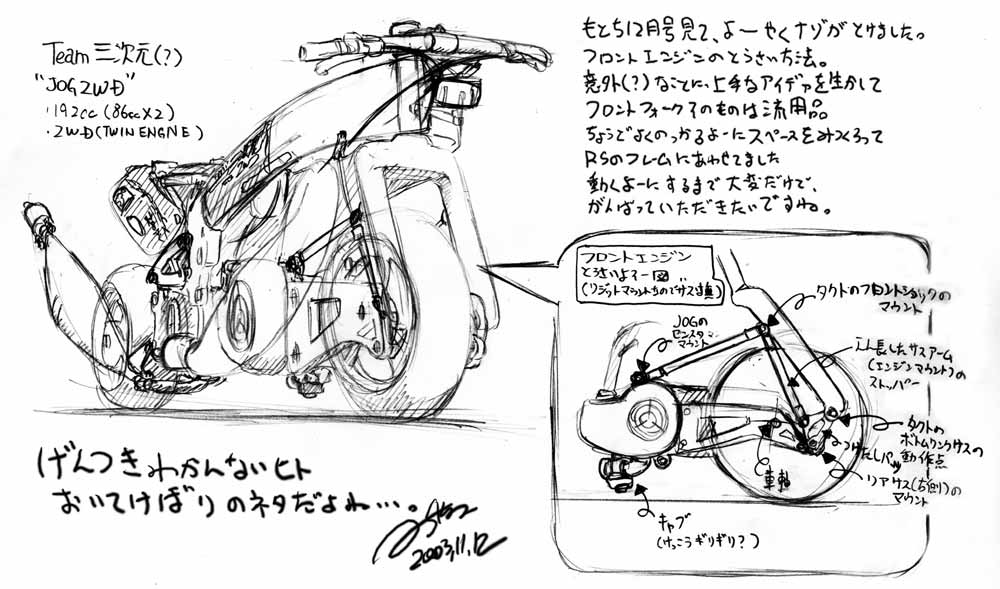 Team 三次元(?)
"JOG2WD"
・192cc (86cc×2)
・2WD(TWIN ENGNE)
もとち12月号見て、よーやくナゾがとけました。
フロントエンジンのとうさい方法。
意外(?)なことに、上手なアイデアを生かして
フロントフォークそのものは流用品
ちょうどよくのっかるよーにスペースをみつくろって
RSのフレームにあわせてました
動くよーにするまで大変だけど、
がんばっていただきたいですね。
フロントエンジン
とうさいよそー図
(リジットマウントなのでサス注意)
タクトのフロントショックの
マウント
JOGの
センスタ
マウント
延長したサスアーム
(エンジンマウント)の
ストッパー
タクトの
ボトムリンクサスの
動作点
つけたしパーツ
リアサス(右側)の
マウント
車軸
キャブ
(けっこうギリギリ?)
げんつきわかんないヒト
おいてけぼりのネタだよね…。
2003,11,12